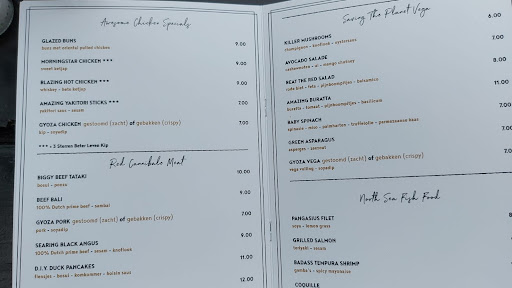 Awesome Chicken Specials
GLAZED BUNS 9.00
buns met oriental pulled chicken
MORNINGSTAR CHICKEN *** 9.00
sweet ketjap
BLAZING HOT CHICKEN *** 9.00
whiskey - hete ketjap
AMAZING YAKITORI STICKS *** 7.00
yakitori saus - sesam
GYOZA CHICKEN gestoomd (zacht) of gebakken (crispy) 7.00
kip - soyadip
*** = 3 Sterren Beter Leven Kip
Red Cannibale Meat
BIGGY BEEF TATAKI 10.00
bosui - ponzu
BEEF BALI 9.00
100% Dutch prime beef - sambal
GYOZA PORK gestoomd (zacht) of gebakken (crispy) 7.00
pork - soyadip
SEARING BLACK ANGUS 9.00
100% Dutch prime beef - sesam - knoflook
D.I.Y DUCK PANCAKES 11.00
flensjes - bosui - komkommer - hoisin saus
12.00
Saving The Planet Vega
KILLER MUSHROOMS 6.00
champignon - knoflook
AVOCADO SALADE 7.00
mango chutney
BEAT THE RED SALAD 8.00
rode biet - feta - pijnboompitjes - balsamico
AMAZING BURATTA 11.00
buratta - tomaat - pijnboompitjes - basilicum
BABY SPINACH 7.00
spinazie - miso - palmharten - truffelolie - parmezaanse kaas
GREEN ASPARAGUS 7.00
asperges
GYOZA VEGA gestoomd (zacht) of gebakken (crispy) 7.00
vega vulling - soyadip
North Sea Fish Food
PANGASIUS FILET
soja - lemon grass
GRILLED SALMON
teriyaki - sesam
BADASS TEMPURA SHRIMP
gamba's - spicy mayonaise
COQUILLE